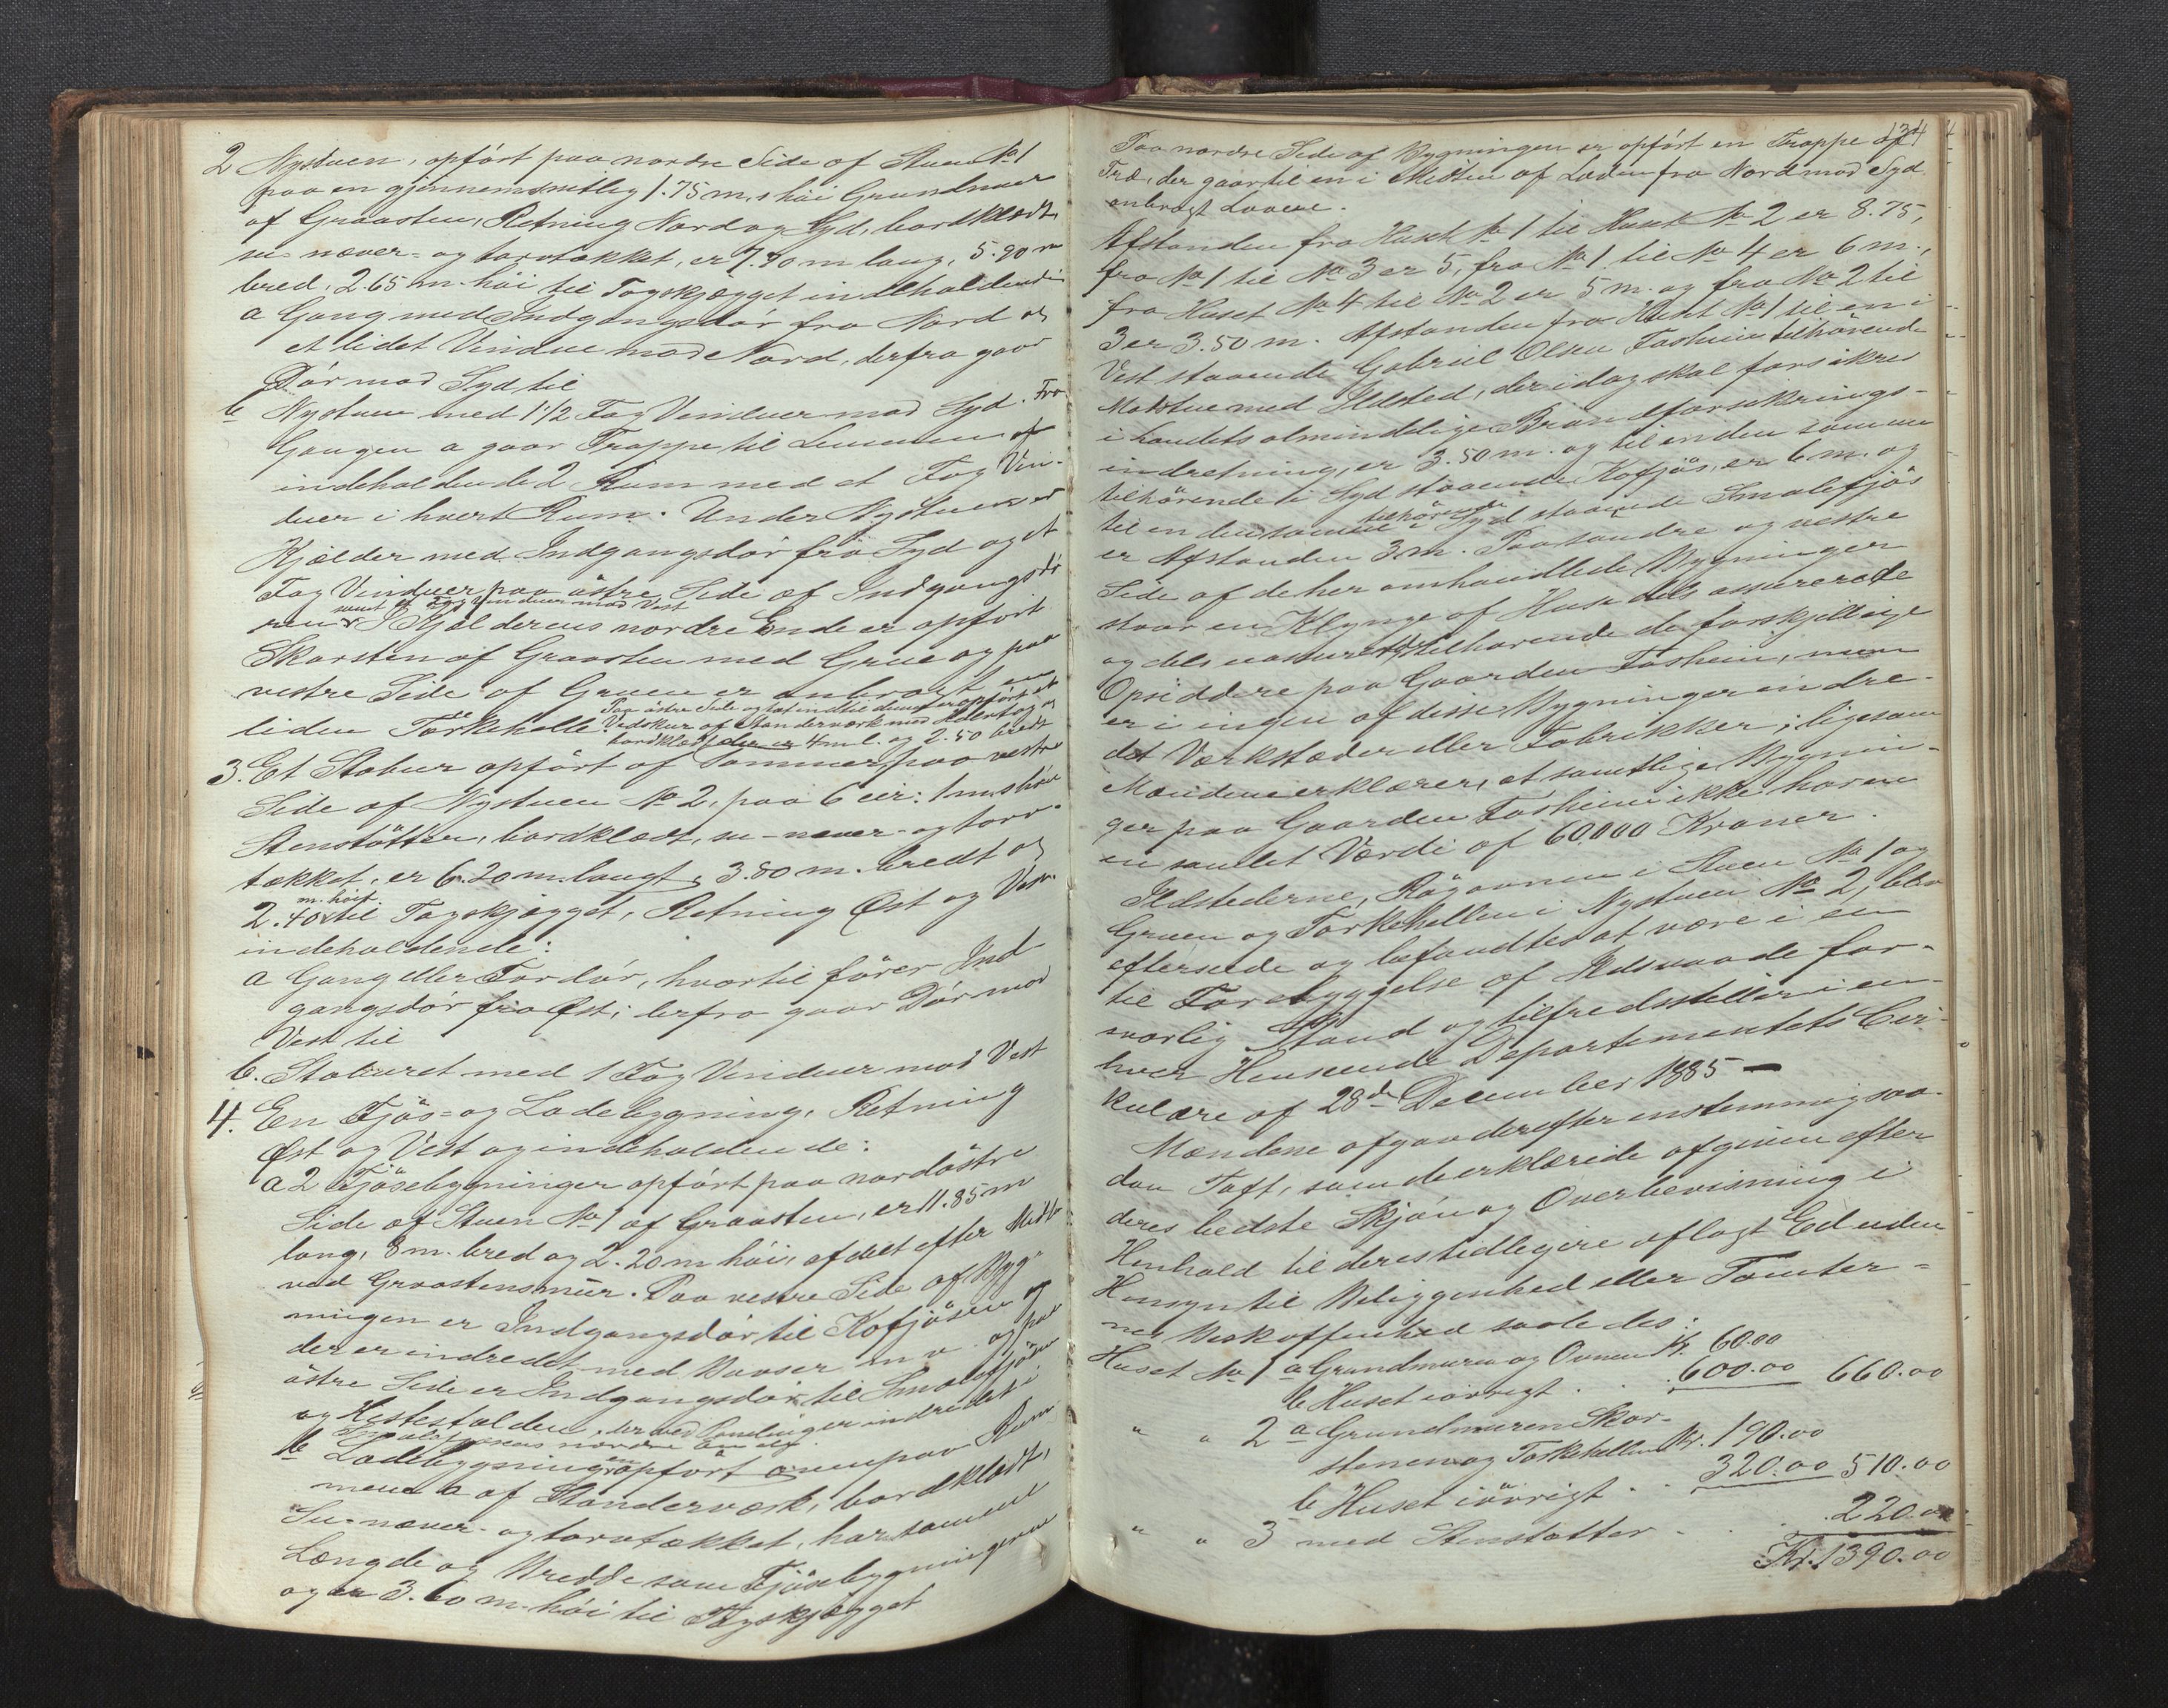 2 Nystuen, opført paa nordre Side af Stuen No 1
paa en gjennemsnitlig 1.75 m.s høi Grundmuur
af Graasten, Retning Nord og Syd, bordklædt,
su- næver- og torvtækket, er 7.90 m lang, 5.90 m
bred, 2.65 m. høi til Tagskjægget indeholdende
a Gang med Indgangsdør fra Nord og
et lidet Vindue mod Nord, derfra gaar
Dør mod Syd til
b Nystuen med 1 1/2 Fag Vinduer mod Syd. Fra
Gangen a gaar Trappe til Lemmen
indeholdende 2 Rum med et Fag Vin-
duer i hvert Rum. Under Nystuen er
Kjælder med Indgangsdør fra Syd og et
Fag Vinduer paa østre Side af Indgangsdø
ren samt et Fag Vinduer mod Vest. I Kjælderens nordre Ende er opført
Skorsten af Graasten med Grue og paa
vestre Side af Gruen er anbragt en
liden Tørkehelle. Paa østre Side og tæt indtil denne er opført et
Vedskur af Stenderværk med Helertag og
bordklædt, der er 4 m l. og 2.50 bredt
3. Et Stabur opført af Tømmer paa vestre
Side af Nystuen No 2, paa 6 cir: 1 m.s høie
Stenstøtter, bordklædt, su- næver- og torv-
tækket, er 6.20 m. langt, 3.80 m. bredt og
2.40 m. høit til Tagskjægget, Retning Øst og Vest
indeholdende:
a Gang eller Fordør, hvortil fører Ind
gangsdør fra Øst; herfra gaar Dør mod
Vest til
b. Staburet med 1 Fag Vinduer mod Vest
4. En Fjøs- og Ladebygning, Retning
Øst og Vest og indeholdende:
a 2 Fjøsebygninger opført paa nordøstre
Side af Stuen No 1 af Graasten, er 11.85 m
lang, 8 m. bred og 2.20 m høi, afdelt efter Midten
ved Graastensmur. Paa vestre Side af Byg-
ningen er Indgangsdør til Kofjøsen og
der er indredet med Baaser m. v. og paa
østre Side er Indgangsdør til Smalefjøsen
og Hestestalden, der ved Pandinger er indredet i
Smalefjøsens nordre Ende.
b Ladebygningen opført ovenpaa Rum
mene a af Stenderværk, bordklædt,
su- næver- og torvtækket, har samme
Længde og Bredde som Fjøsebygningerne
og er 3.60 m. høi til Tagskjægget
134
Paa nordre Side af Bygningen er opført en Trappe af
Træ, der gaar til en i Midten af Laden fra Nord mod Syd
anbragt Laave.
Afstanden fra Huset No 1 til Huset No 2 er 8.75,
fra No 1 til No 3 er 5, fra No 1 til No 4 er 6 m.,
fra Huset No 4 til No 2 er 5 m. og fra No 2 til
3 er 3.50 m. Afstanden fra Huset No 1 til en i
Vest staaende Gabriel Olsen Fosheim tilhørende
Madstue med Ildsted, der idag skal forsikres
i Landets almindelige Brandforsikrings-
indretning, er 3.50 m. og til en den samme
tilhørende i Syd staaende Kofjøs, er 6 m. og
til en den samme tilhørende i Syd staaende Smalefjøs
er Afstanden 3 m. Paa søndre og vestre
Side af de her omhandlede Bygninger
staar en Klynge af Huse dels assurerede
og dels uassurerede tilhørende de forskjellige
Opsiddere paa Gaarden Fosheim, men
er i ingen af disse Bygninger indre-
det Værksteder eller Fabrikker; ligesom
Mændene erklærer, at samtlige Bygnin-
ger paa Gaarden Fosheim ikke have
en samlet Værdi af 60,000 Kroner.
Ildstederne, Røgovnen i Stuen No 1 og
Gruen og Tørkehellen i Nystuen No 2, blev
efterseede og befandtes at være i en
til Forebyggelse af Ildsvaade for-
svarlig Stand og tilfredsstiller i en-
hver Henseende Departementets Cir-
kulære af 28de December 1885 —
Mændene afgav derefter enstemmig saa-
dan Taxt, som de erklærede afgiven efter
deres bedste Skjøn og Overbevisning i
Henhold til deres tidligere aflagt Ed uden
Hensyn til Beliggenhed eller Tomter-
nes Beskaffenhed saaledes:
Huset No 1 a Grundmuren og Ovnen Kr. 60.00
b Huset iøvrigt . . 600.00 660.00
" " 2 a Grundmuren Skor-
stenen og Tørkehellen Kr. 190.00
b Huset iøvrigt . . 320.00 510.00
" " 3 med Stenstøtter . . . 220.00
Kr. 1390.00